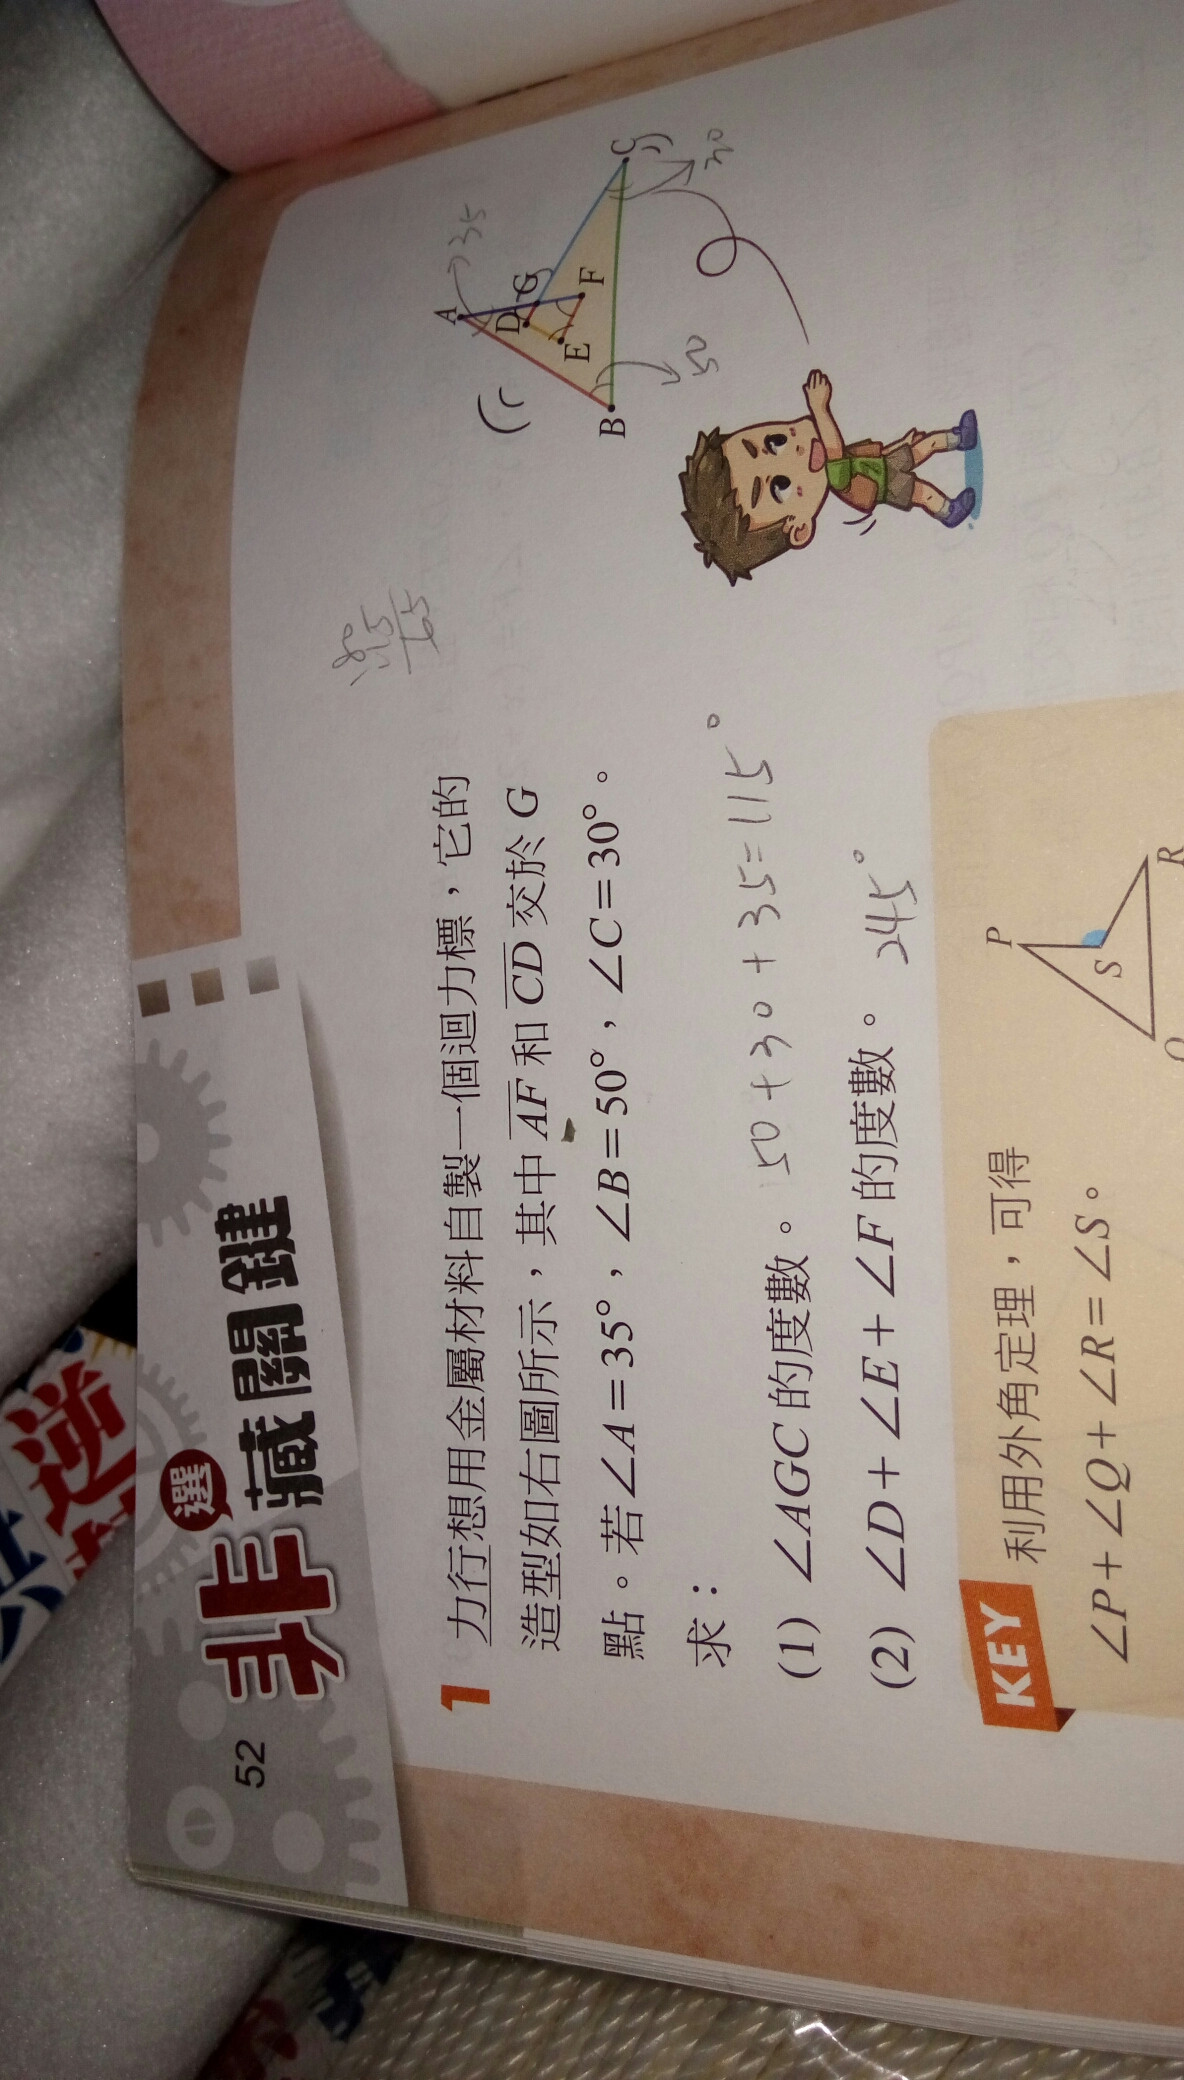 52
非選
藏關鍵
1 力行想用金屬材料自製一個迴力標，它的
造型如右圖所示，其中AF和CD交於G
點。若∠A=35°，∠B=50°，∠C=30°。
求：
(1) ∠AGC的度數。50+30+35=115°
(2) ∠D+∠E+∠F的度數。245°
A
35
D
G
E
F
B
C
50
30
KEY
利用外角定理，可得
∠P+∠Q+∠R=∠S。
P
S
R
逆